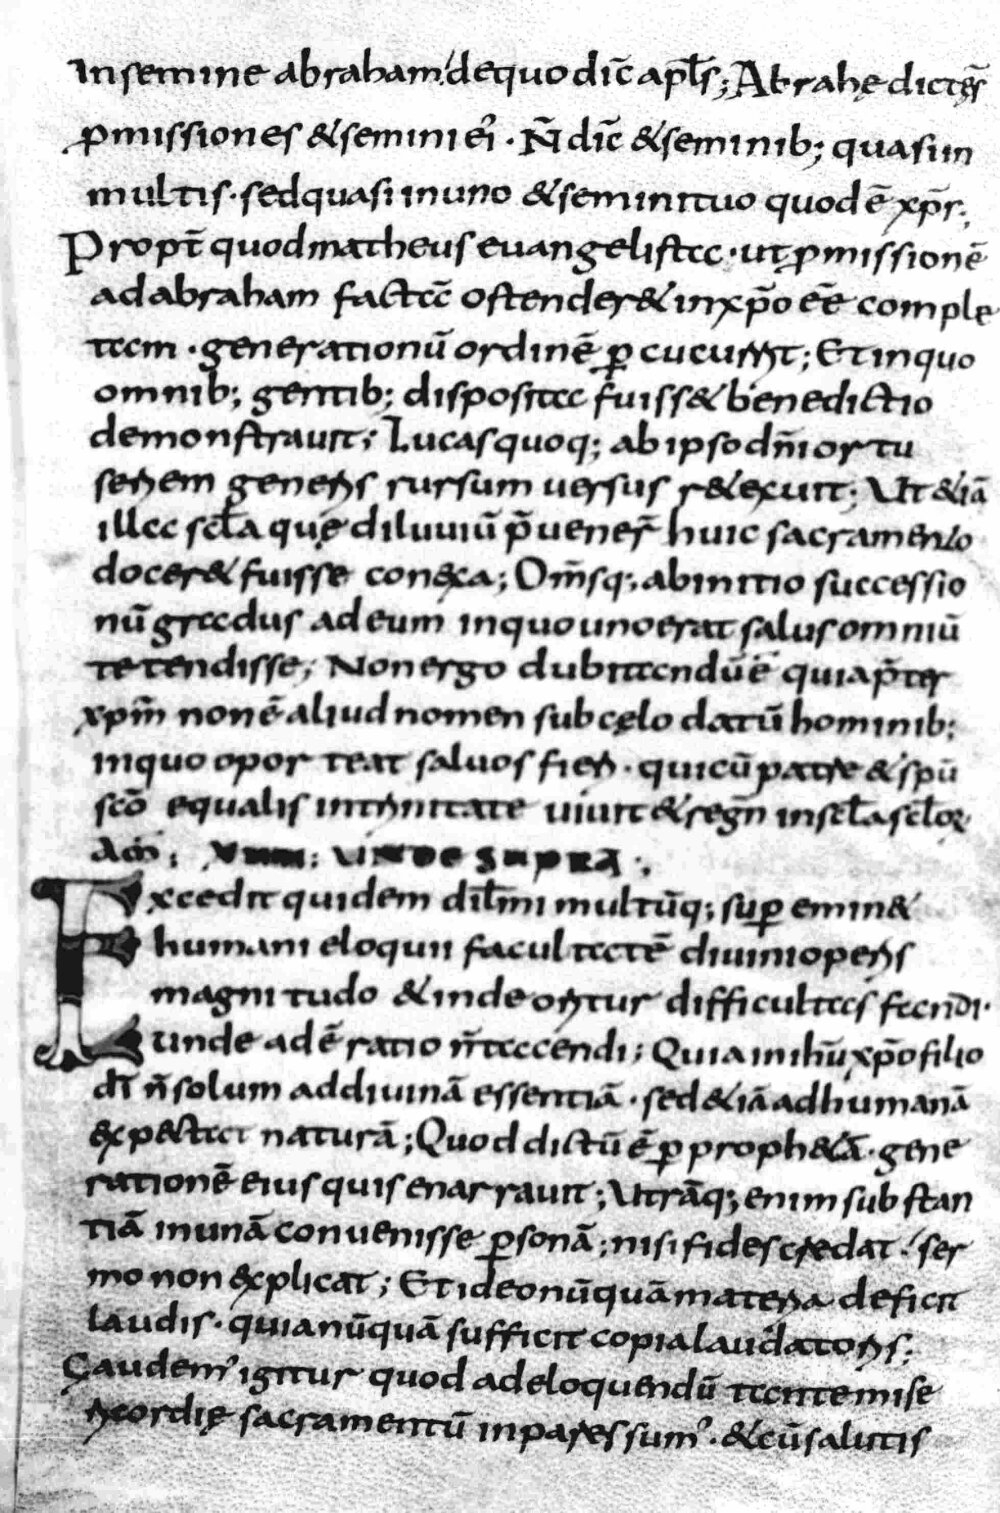 In semine abraham; de quo dic̄ apl̄s; Abrahę dictęs̄
ꝓmissiones & semini ei᾽ · N̄ dic̄ & seminib; quasi in
multis · sed quasi in uno & semini tuo quod ē xp̄s;
Propt̄ quod matheus euangelista · ut ꝓmissionē
ad abraham factā ostender& in xp̄o eē comple
tam · generationū ordinē ꝑcucurrit; Et in quo
omnib; gentib; disposita fuiss& benedictio
demonstrauit; Lucas quoq; ab ipso dn̄i ortu
seriem generis rursum uersus r&exuit; Ut &iā
illa scl̄a quę diluuiū p̄uener̄ huic sacramento
docer& fuisse conexa; Om̄sq; ab initio successio
nū gradus ad eum in quo uno erat salus omniū
tetendisse; Non ergo dubitandū ē quia p̄ter
xpm̄ non ē aliud nomen sub cęlo datū hominib;
in quo oporteat saluos fieri · qui cū patre & sp̄u
sc̄o equalis in trinitate uiuit & regn̄ in scl̄a scl̄oꝝ
Am̄; UNDE SUPRA ·,
Excedit quidem dil̄mi multūq; suꝑemin&
humani eloquii facultatē diuini operis
magnitudo & inde oritur difficultas fandi ·
unde adē ratio n̄ tacendi; Quia in ih̄u xp̄o filio
dī n̄ solum ad diuinā essentiā · sed &iā ad humanā
exp&ctat naturā; Quod dictū ē ꝑ proph&ā · gene
rationē eius quis enarrauit; Utrāq; enim substan
tiā in unā conuenisse ꝑsonā; nisi fides credat · ser
mo non explicat; Et ideo nūquā materia deficit
laudis · quia nūquā sufficit copia laudatoris;
Gaudem᾽ igitur quod ad eloquendū tantę mise
ricordię sacramentū inpares sum᾽ · & cū salutis